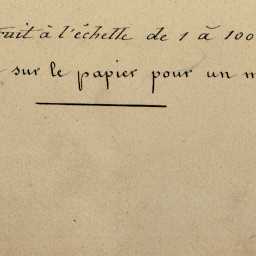 à l'échelle de 1 à 100
sur le papier pour un